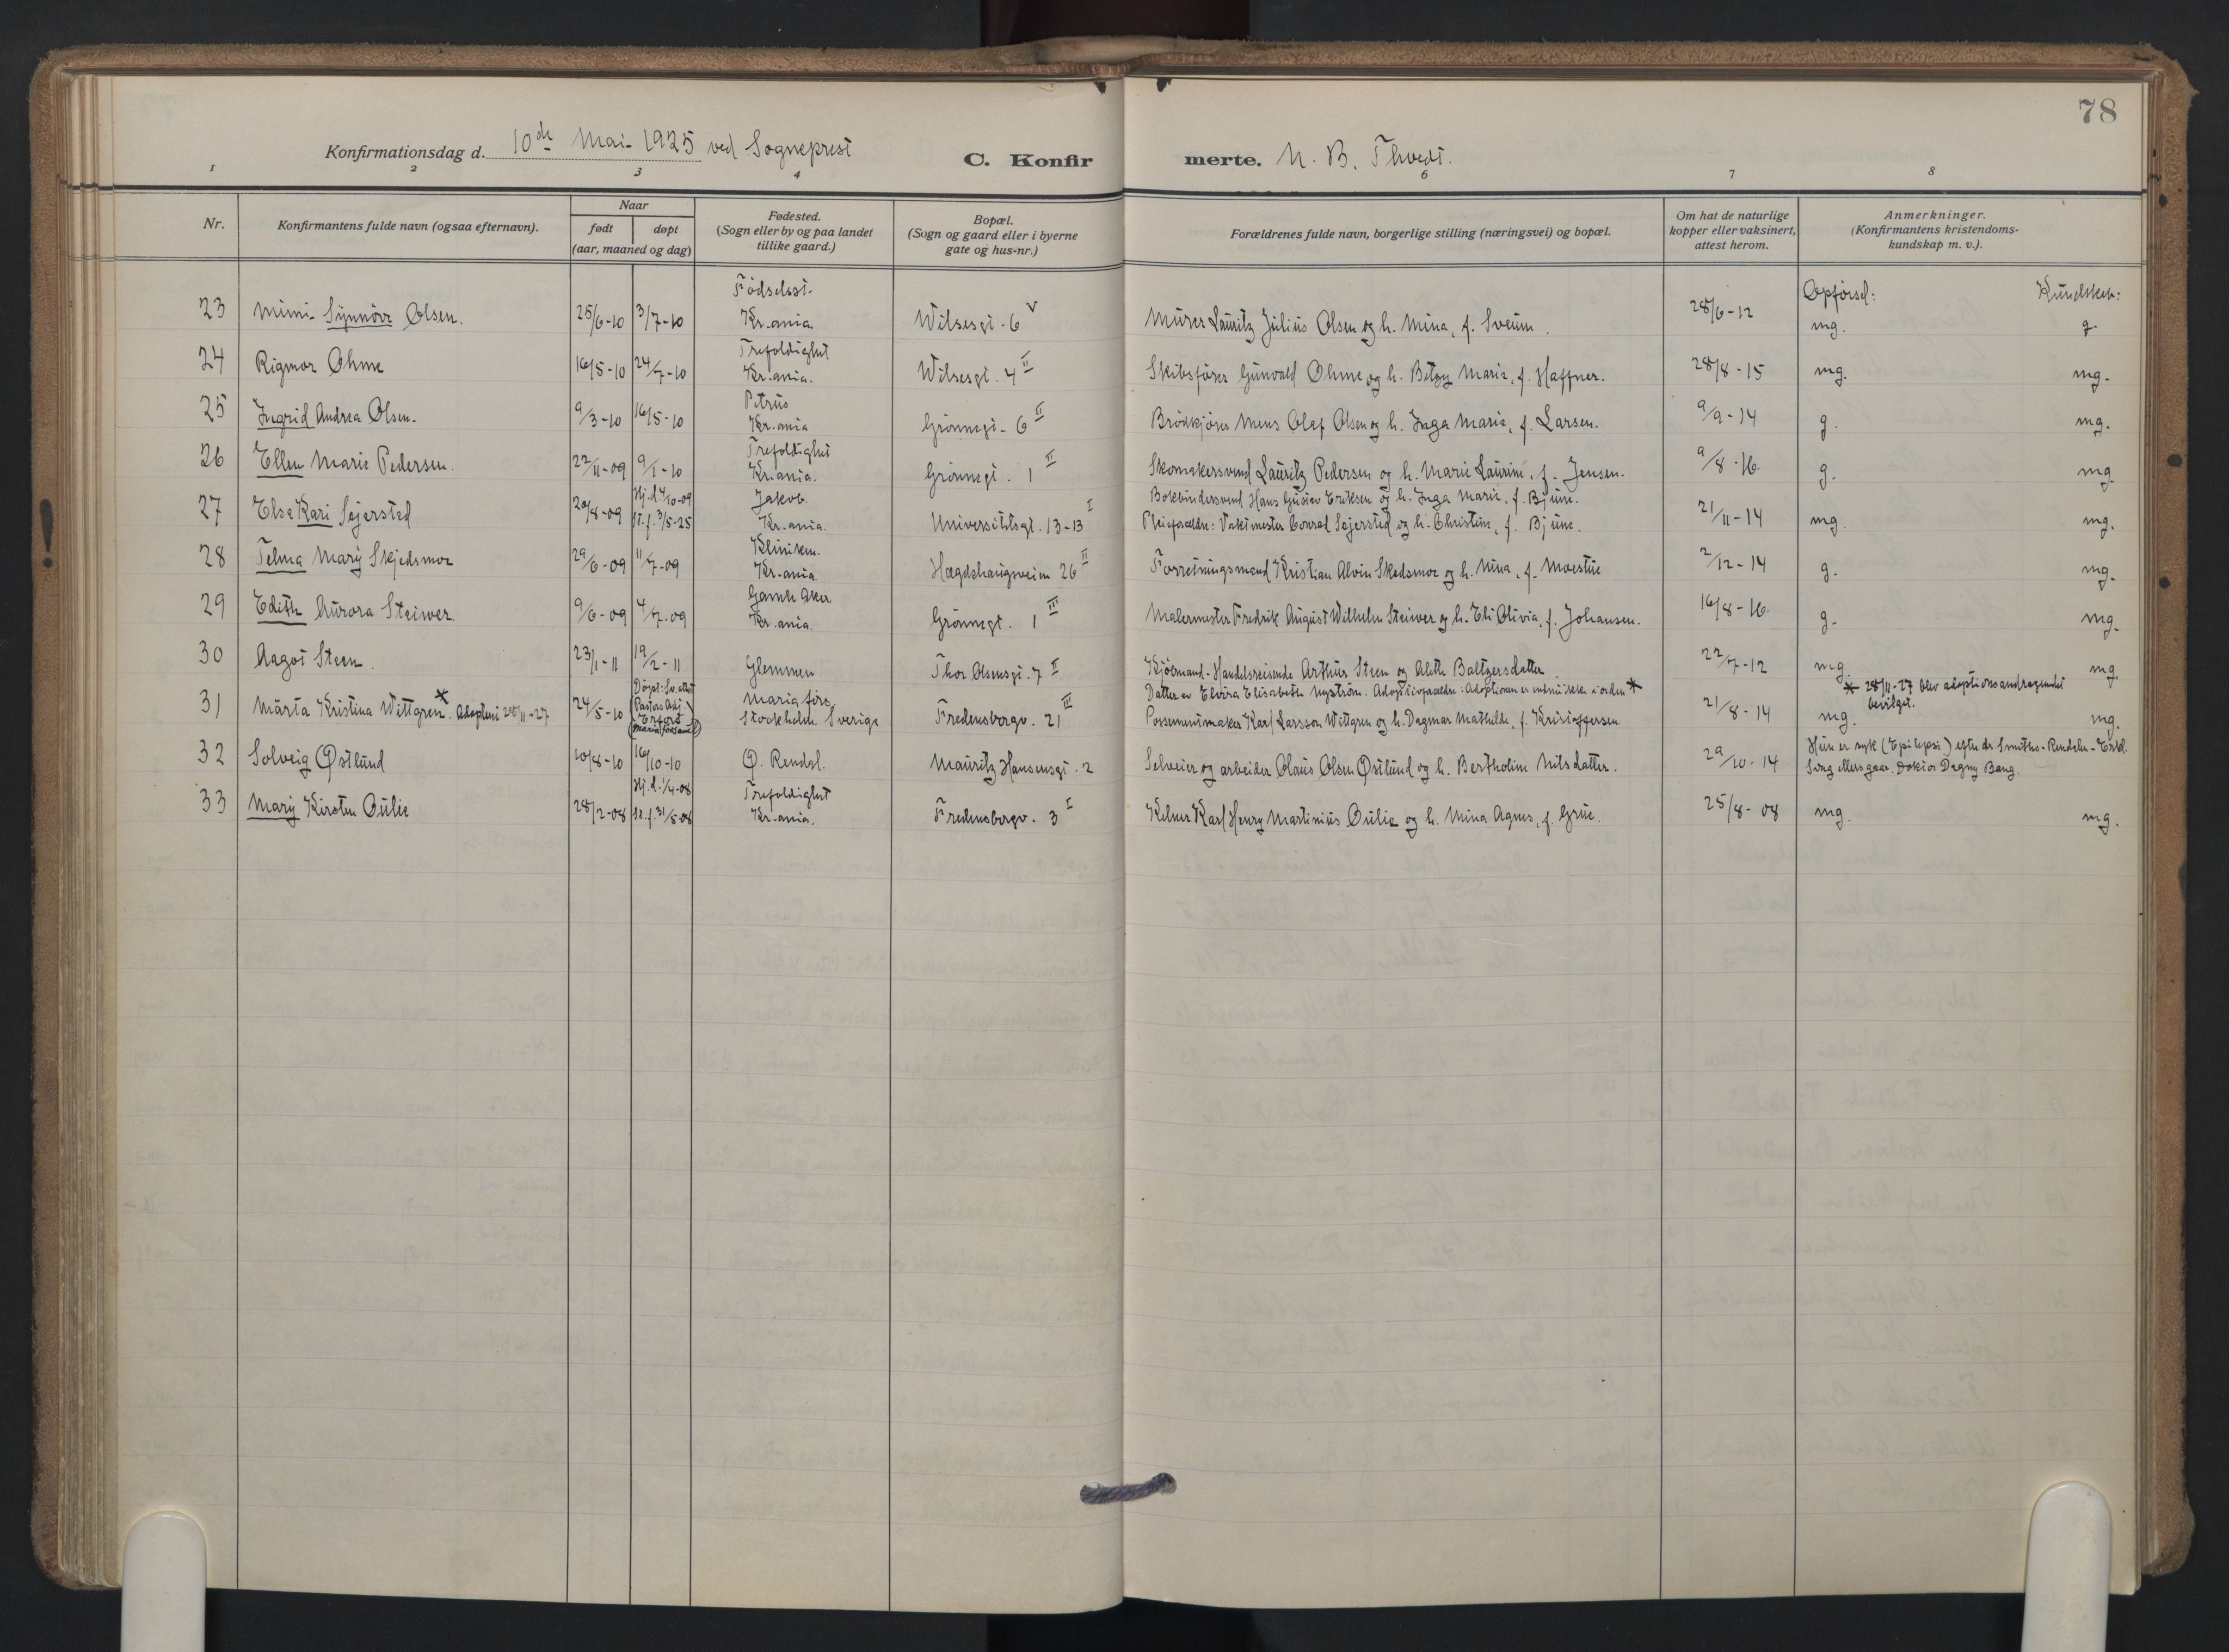 78
Konfirmationsdag d. 10de Mai 1925 ved Sogneprest C. Konfir merte. N. B. Thvedt.
1 2 3 4 6 7 8
Nr. Konfirmantens fulde navn (ogsaa efternavn). Naar født døpt (aar, maaned og dag) Fødested. (Sogn eller by og paa landet tillike gaard.) Bopæl. (Sogn og gaard eller i byerne gate og hus-nr.) Forældrenes fulde navn, borgerlige stilling (næringsvei) og bopæl. Om hat de naturlige kopper eller vaksinert, attest herom. Anmerkninger. (Konfirmantens kristendoms-kundskap m. v.).
Fødselsst. Opførsel: Kundskab:
23 Mimi Synnöve Olsen. 25/6-10 3/7-10 Kr.ania Wilsesgt. 6 V Murer Lauritz Julius Olsen og h. Mina, f. Sveum. 28/6-12 mg. g.
Trefoldighet
24 Rigmor Ohme 16/5-10 24/7-10 Kr.ania. Wilsesgt. 4 II Skibsfører Gunvald Ohme og h. Betzy Marie, f. Haffner. 28/8-15 mg. mg.
Petrus
25 Ingrid Andrea Olsen. 9/3-10 16/5-10 Kr.ania Grønnegt. 6 II Brödkjörer Mens Olaf Olsen og h. Inga Marie, f. Larsen. 9/9-14 g. mg.
Trefoldighet
26 Ellen Marie Pedersen. 22/11-09 9/1-10 Kr.ania. Grønnegt. 1 II Skomakersvend Lauritz Pedersen og h. Marie Laurine, f. Jensen. 9/8-16 g. mg.
Hj.d. 4/10-09 Jakob. Bokbindersvend Hans Gustav Eriksen og h. Inga Marie, f. Bjune.
27 Else Kari Sejersted 20/8-09 st. f. 3/5-25 Kr.ania. Universitetsgt. 13-13 I Pleieforældre: Vaktmester Conrad Sejersted og h. Christine, f. Bjune. 21/11-14 mg. mg.
Kliniken.
28 Telma Mary Skjedsmor 29/6-09 11/7-09 Kr.ania. Hægdehaugsveien 26 II Forretningsmand Kristian Alvin Skedsmor og h. Nina, f. Moestue 2/12-14 g. mg.
Gamle Aker
29 Edith Aurora Steiwer 9/6-09 4/7-09 Kr.ania. Grønnegt. 1 III Malermester Fredrik August Wilhelm Steiwer og h. Eli Olivia, f. Johansen. 16/8-16 g. mg.
30 Aagot Steen. 23/1-11 19/2-11 Glemmen Thor Olsensgt. 7 II Kjöbmand-Handelsreisende Arthur Steen og Aleth Baltzersdatter. 22/7-12 mg. mg.
Døpt: Sv. attest Maria förs. Datter av Elvira Elisabeth Nyström. Adoptivforældre: Adoptionen er endnu ikke i orden * * 28/11-27 blev adoptionsandragendet bevilget.
31 Märta Kristina Wittgren * Adoptert 28/11-27 24/5-10 (Pastors Adj. Erfors Maria forsaml.) Stockholm Sverige Fredensborgv. 21 III Possementmaker Karl Larsson Wittgren og h. Dagmar Mathilde, f. Kristoffersen. 21/8-14 mg. mg.
Hun er syk (Epilepsi) efter dr Smiths-Rendalen-Erkl.
32 Solveig Østlund 10/8-10 16/10-10 Ø. Rendal. Mauritz Hansensgt. 2 Selveier og arbeider Olaus Olsen Østlund og h. Bertholine Nilsdatter. 29/10-14 Svag ellers gaar. Doktor Dagny Bang.
Hj.d. 1/4-08 Trefoldighet
33 Mary Kirsten Bulie 28/2-08 st. f. 31/5-08 Kr.ania. Fredensborgv. 3 I Kelner Karl Henry Martinius Bulie og h. Mina Agnes, f. Grue. 25/8-08 mg. mg.